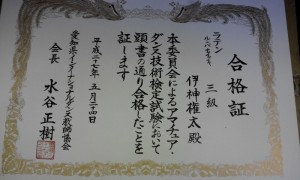 合格証
ラテン
三級
伊神権太殿
本委員会によるアマチュア・
ダンス技術検定試験において
頭書の通り合格したことを
証します
平成二十七年五月二十四日
会長 水谷正樹